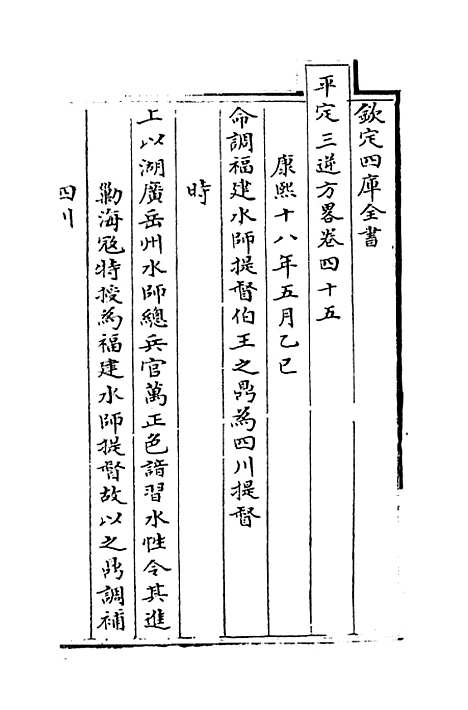 欽定四庫全書
平定三逆方畧卷四十五
康熙十八年五月乙巳
命調福建水師提督伯王之鼎為四川提督
時
上以湖廣岳州水師總兵官萬正色諳習水性令其進
勦海冦特授為福建水師提督故以之鼎調補
四川